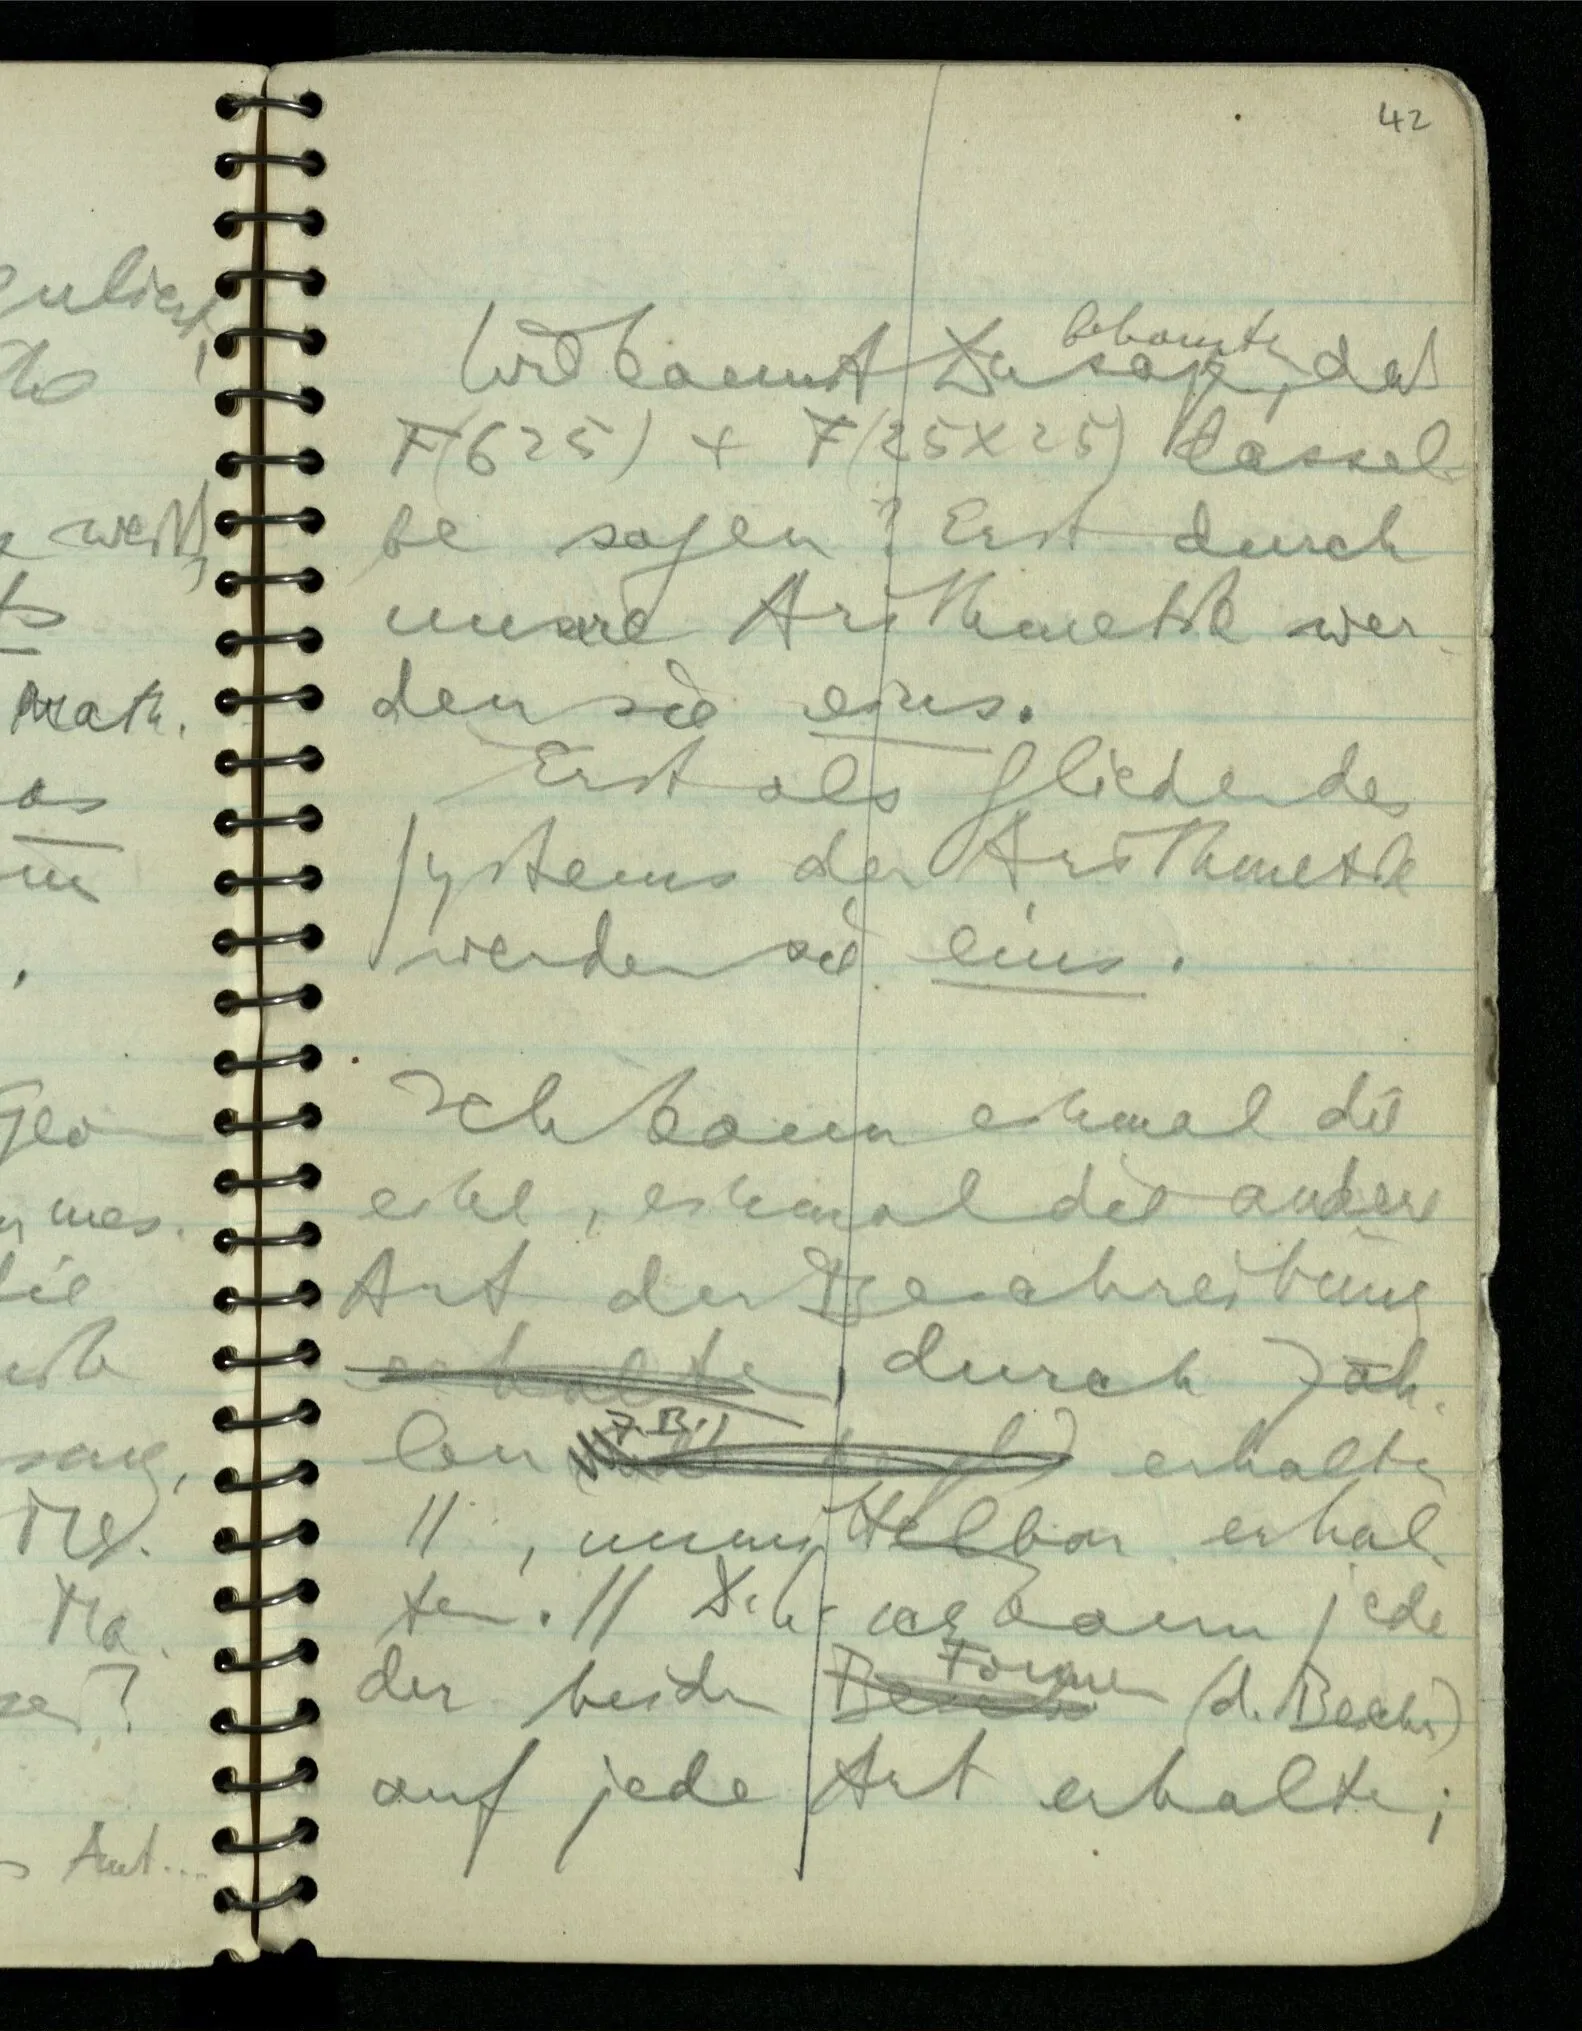 42
Wie kannst Du sagen, daß
behaupten
F(625) + F(25×25) dassel-
be sagen? Erst durch
unsere Arithmetik wer-
den sie eins.
Erst als Glieder des
Systems der Arithmetik
werden sie eins.
Ich kann einmal die
eine, einmal die andere
Art der Beschreibung
erhalten, durch Zäh-
z.B.,
len erhalten
//, unmittelbar erhal-
ten. // D.h. ich kann jede
Formen
der beiden (d. Beschr.)
auf jede Art erhalten;
guliert,
weiß,
Math.
as
Geo
mes.
die
Ma.
Ant...